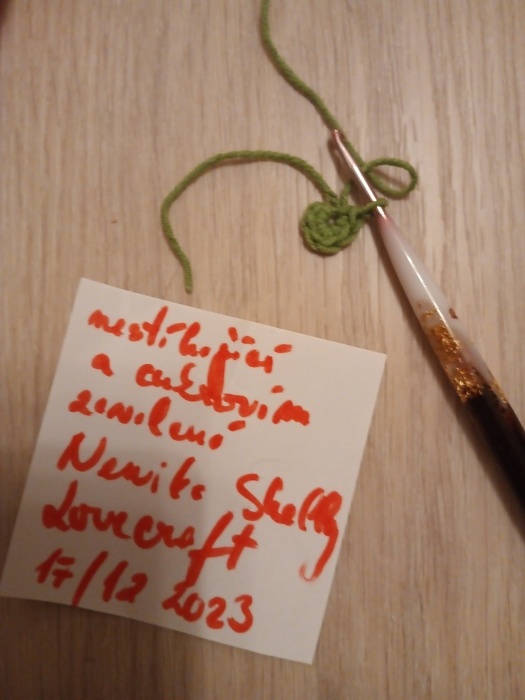 nestíhající
a cukrovím
zavalená
Nenita Shelly
Lovecraft
17/12 2023